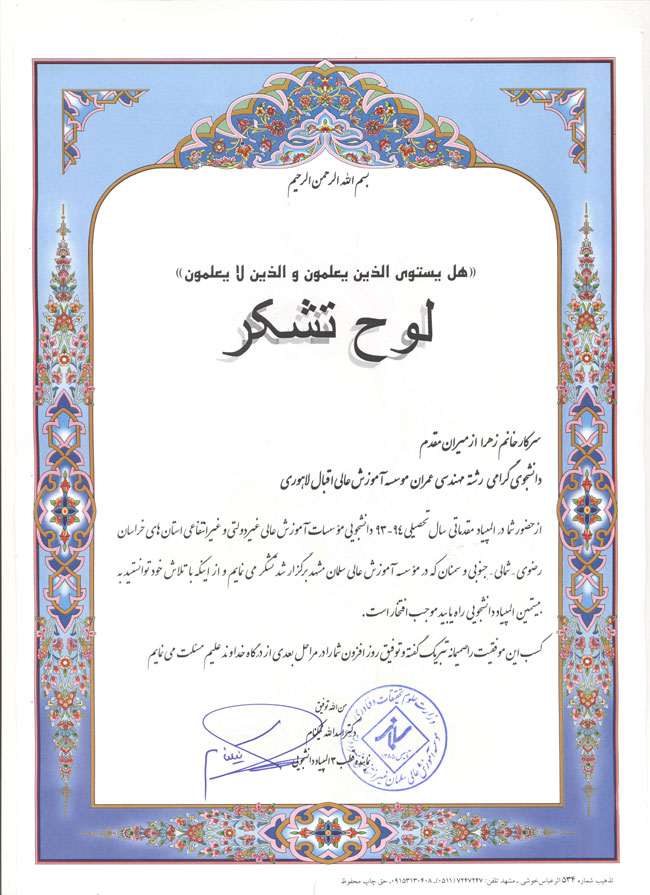 بسم الله الرحمن الرحیم
«هل یستوی الذین یعلمون و الذین لا یعلمون»
لوح تشکر
سرکار خانم زهرا ازمیران مقدم
دانشجوی گرامی رشته مهندسی عمران موسسه آموزش عالی اقبال لاهوری
از حضور شما در المپیاد مقدماتی سال تحصیلی ۹۴-۹۳ دانشجویی مؤسسات آموزش عالی غیردولتی و غیرانتفاعی استان های خراسان
رضوی - شمالی - جنوبی و سمنان که در مؤسسه آموزش عالی سلمان مشهد برگزار شد تشکر می نمایم و از اینکه با تلاش خود توانستید به
بیستمین المپیاد دانشجویی راه یابید موجب افتخار است.
کسب این موفقیت را صمیمانه تبریک گفته و توفیق روز افزون شما را در مراحل بعدی از درگاه خداوند علیم مسئلت می نمایم
من الله توفیق
دکتر اسدالله نیکنام
نماینده قطب ۳ المپیاد دانشجویی
وزارت علوم تحقیقات و فناوری
سلمان
موسسه آموزش عالی سلمان
تذهیب شماره ۵۳۴ اثر عباس خوشی - مشهد تلفن: ۷۲۴۷۲۴۷ (۰۵۱۱) - ۰۹۱۵۳۱۳۰۴۰۸ - حق چاپ محفوظ